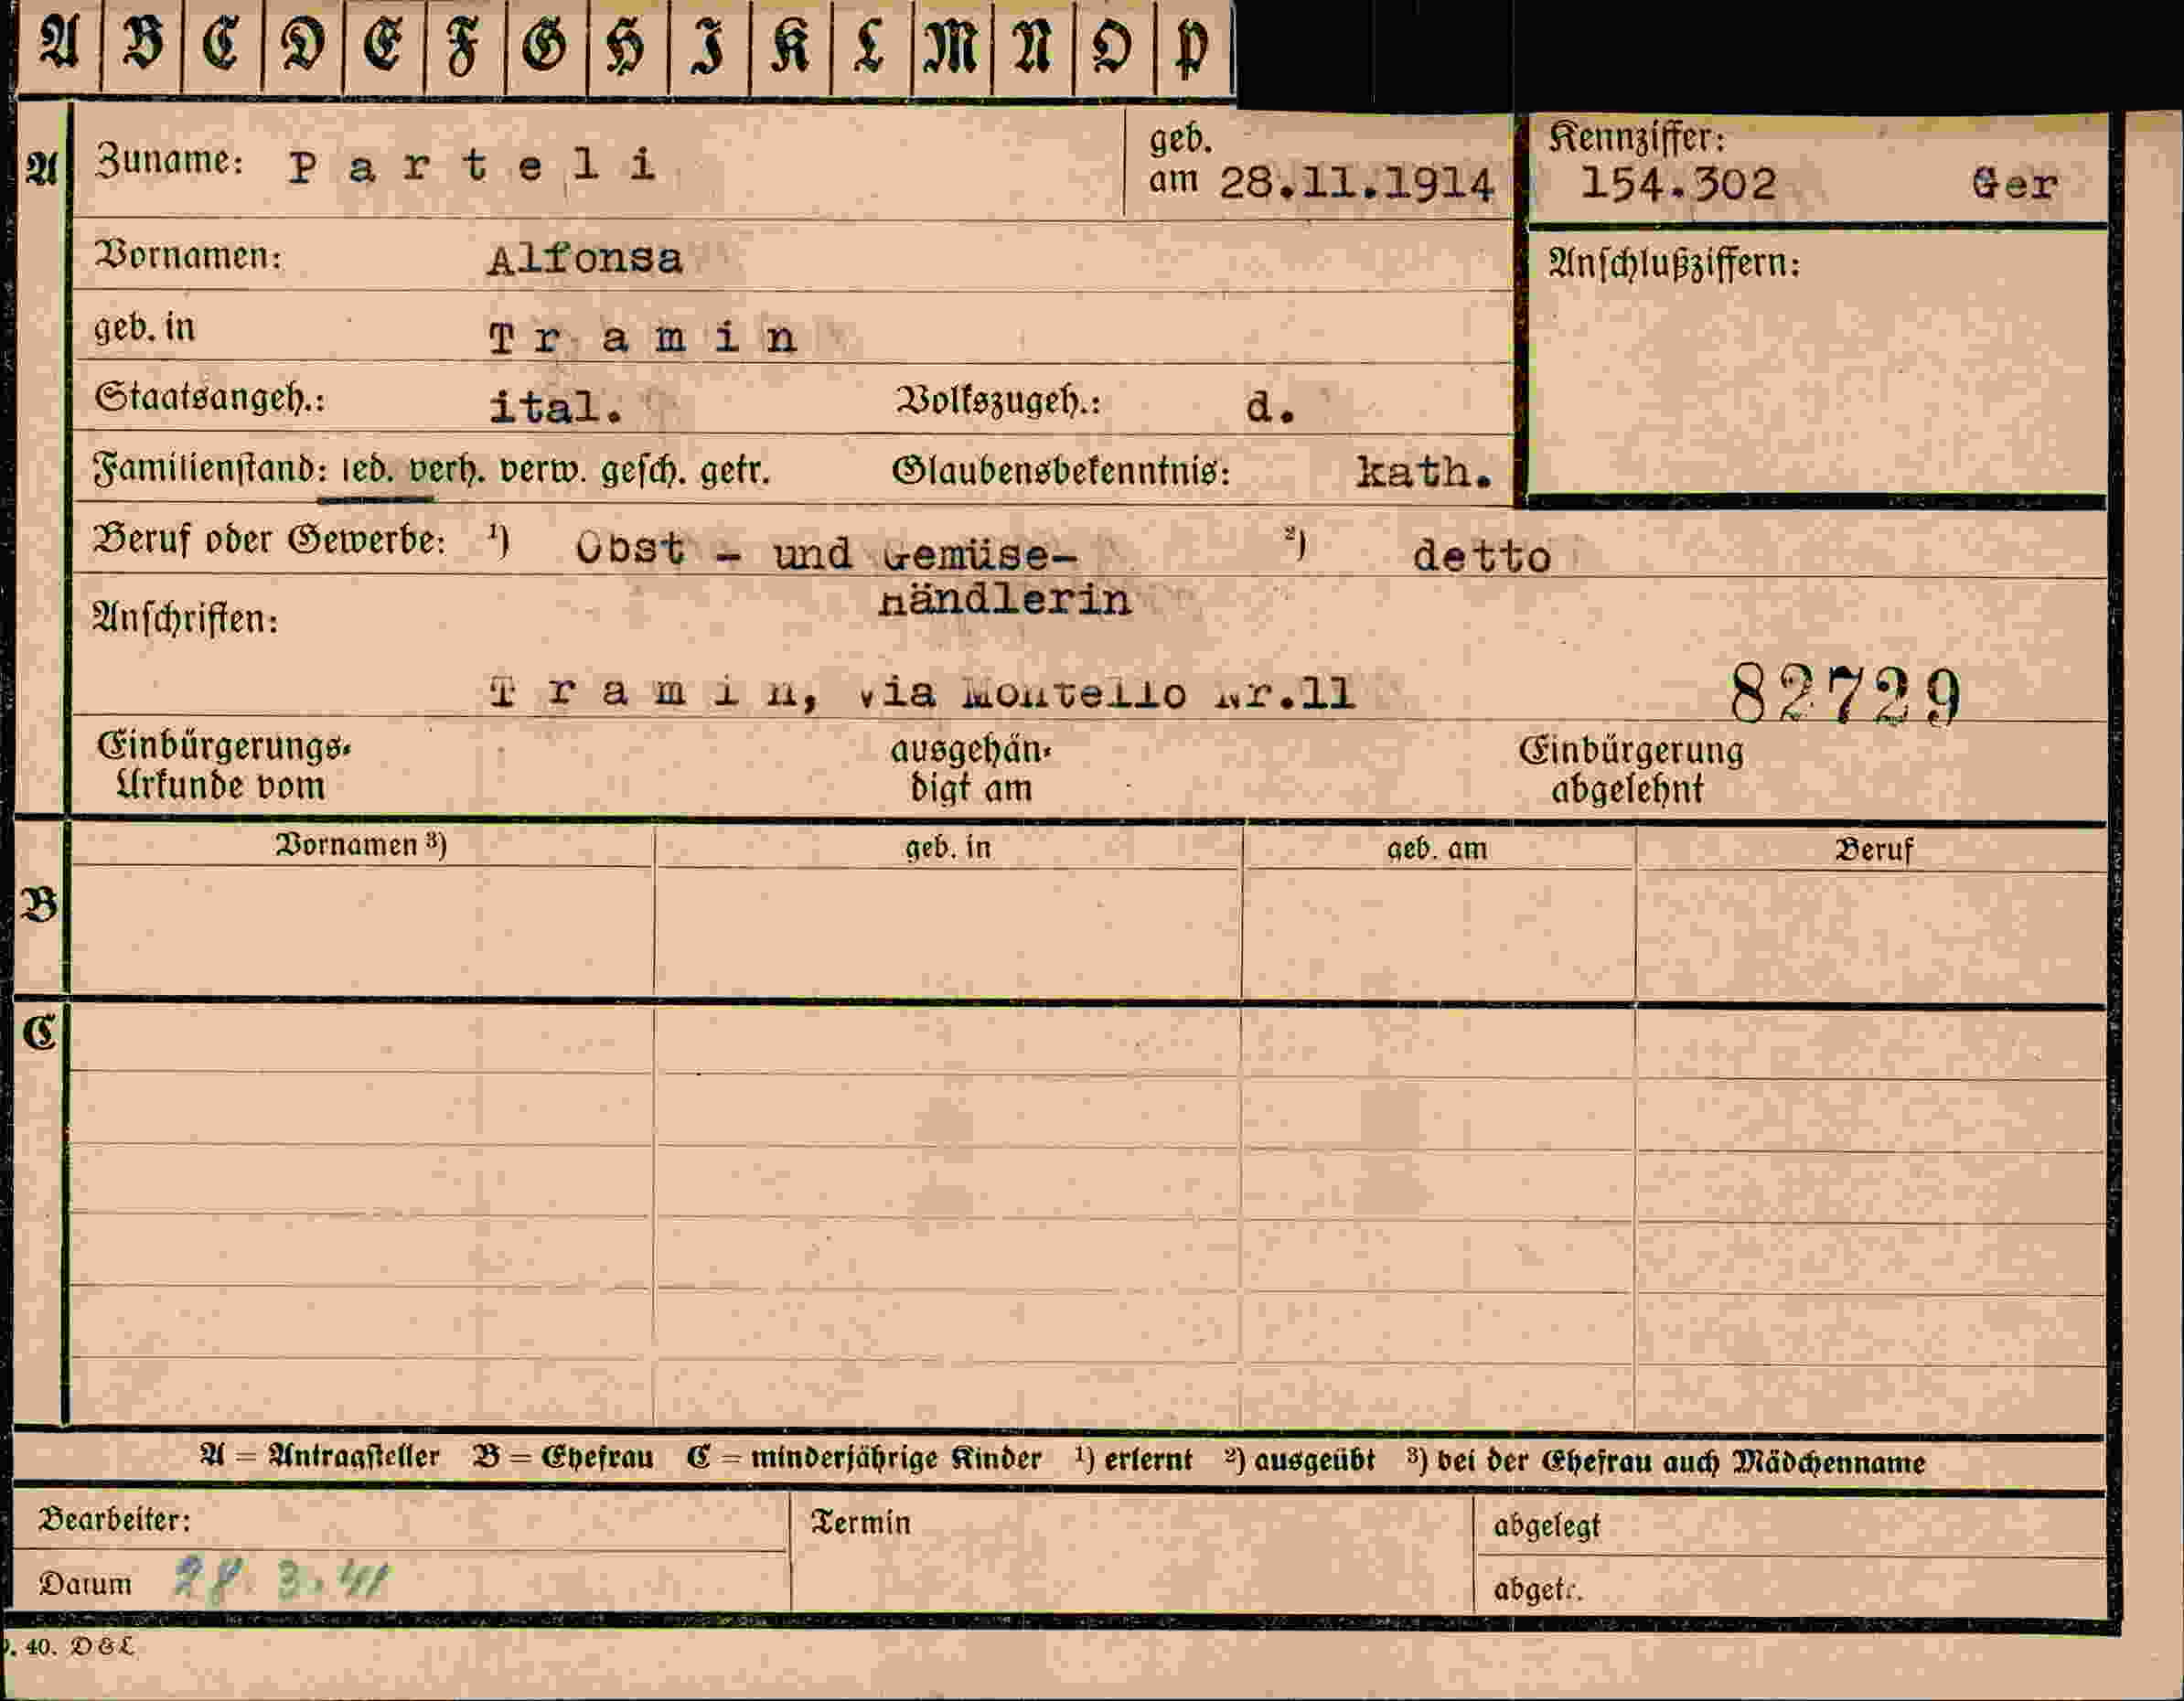 A B C D E F G H I K L M N O P
A Zuname: Parteli geb. am 28.11.1914 Kennziffer: 154.302 Ger
Vornamen: Alfonsa Anschlußziffern:
geb. in Tramin
Staatsangeh.: ital. Volkszugeh.: d.
Familienstand: led. verh. verw. gesch. getr. Glaubensbekenntnis: kath.
Beruf oder Gewerbe: ¹) Obst - und Gemüse- ²) detto
händlerin
Anschriften:
Tramin, via Montello Nr.11 82729
Einbürgerungs- ausgehän- Einbürgerung
Urkunde vom digt am abgelehnt
Vornamen ³) geb. in geb. am Beruf
B
C
A = Antragsteller B = Ehefrau C = minderjährige Kinder ¹) erlernt ²) ausgeübt ³) bei der Ehefrau auch Mädchenname
Bearbeiter: Termin abgelegt
Datum 3.41 abgetr.
40. D&L